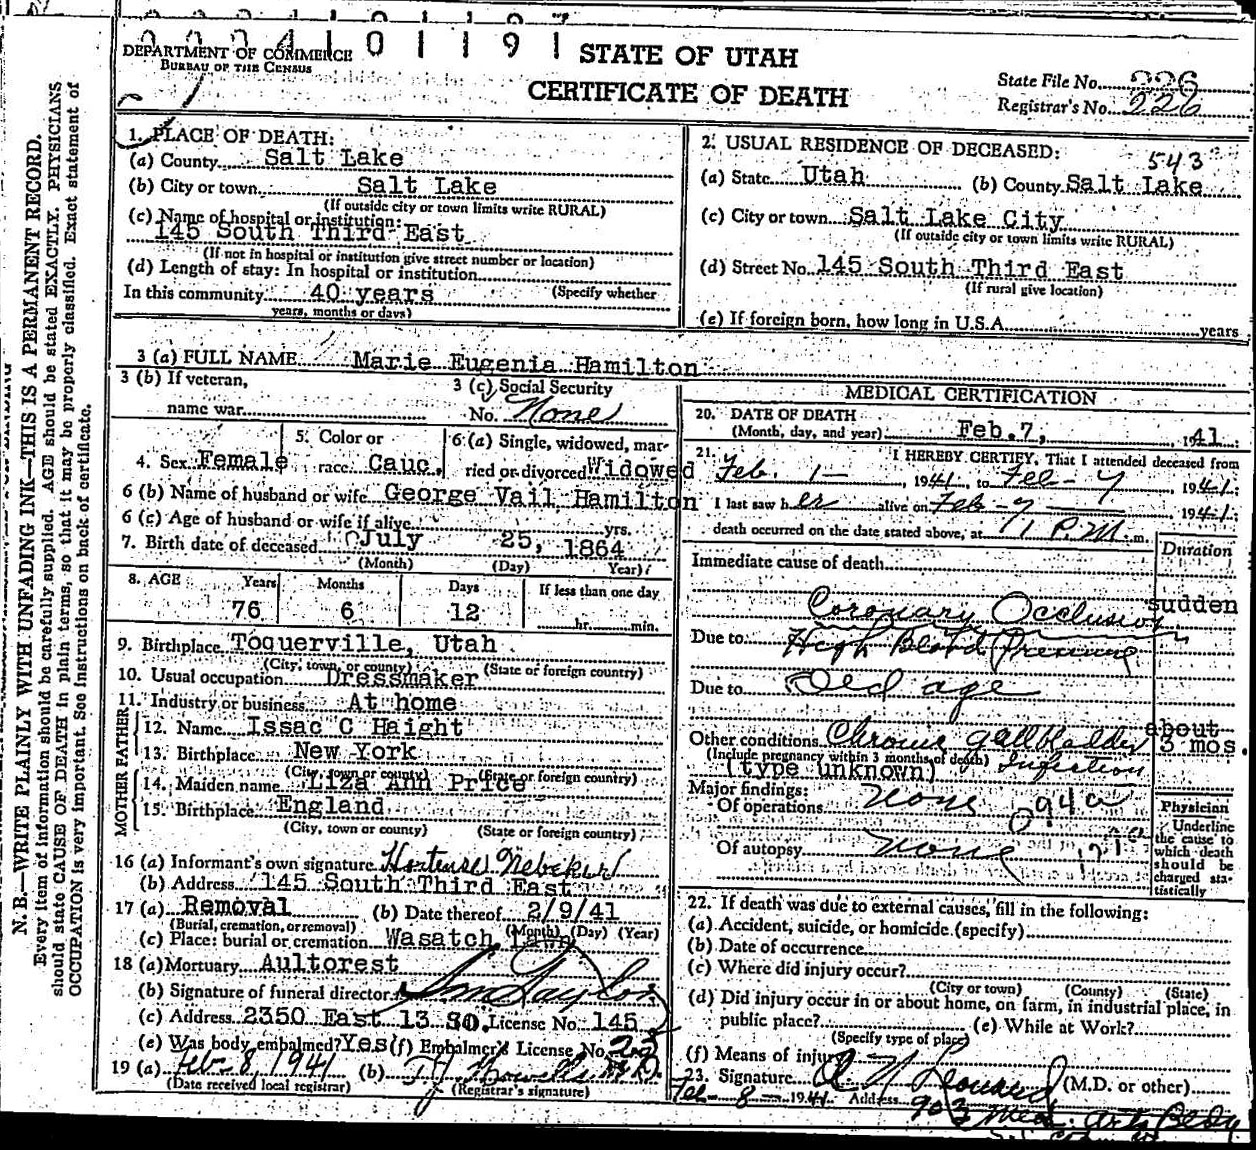 0 0 2 4 1 0 1 1 9 1
DEPARTMENT OF COMMERCE
BUREAU OF THE CENSUS
STATE OF UTAH
CERTIFICATE OF DEATH
State File No. 226
Registrar's No. 226
N. B.—WRITE PLAINLY WITH UNFADING INK—THIS IS A PERMANENT RECORD.
Every item of information should be carefully supplied. AGE should be stated EXACTLY. PHYSICIANS
should state CAUSE OF DEATH in plain terms, so that it may be properly classified. Exact statement of
OCCUPATION is very important. See instructions on back of certificate.
1. PLACE OF DEATH:
(a) County Salt Lake
(b) City or town Salt Lake
(If outside city or town limits write RURAL)
(c) Name of hospital or institution:
145 South Third East
(If not in hospital or institution give street number or location)
(d) Length of stay: In hospital or institution
In this community 40 years (Specify whether
years, months or days)
2. USUAL RESIDENCE OF DECEASED: 543
(a) State Utah (b) County Salt Lake
(c) City or town Salt Lake City
(If outside city or town limits write RURAL)
(d) Street No. 145 South Third East
(If rural give location)
(e) If foreign born, how long in U.S.A. years
3 (a) FULL NAME Marie Eugenia Hamilton
3 (b) If veteran,
name war
3 (c) Social Security
No. None
4. Sex Female
5. Color or
race Cauc.
6 (a) Single, widowed, mar-
ried or divorced Widowed
6 (b) Name of husband or wife George Vail Hamilton
6 (c) Age of husband or wife if alive yrs.
7. Birth date of deceased July 25, 1864
(Month) (Day) Year)
8. AGE Years Months Days If less than one day
76 6 12 hr. min.
9. Birthplace Toquerville, Utah
(City, town, or county) (State or foreign country)
10. Usual occupation Dressmaker
11. Industry or business At home
FATHER
12. Name Issac C Haight
13. Birthplace New York
(City, town or county) (State or foreign country)
MOTHER
14. Maiden name Liza Ann Price
15. Birthplace England
(City, town or county) (State or foreign country)
16 (a) Informant's own signature Hortense Nebeker
(b) Address 145 South Third East
17 (a) Removal (b) Date thereof 2/9/41
(Burial, cremation, or removal) (Month) (Day) (Year)
(c) Place: burial or cremation Wasatch Lawn
18 (a) Mortuary Aultorest
(b) Signature of funeral director
(c) Address 2350 East 13 SO. License No. 145
(e) Was body embalmed? Yes (f) Embalmer's License No.
19 (a) Feb 8, 1941 (b)
(Date received local registrar) (Registrar's signature)
MEDICAL CERTIFICATION
20. DATE OF DEATH
(Month, day, and year) Feb. 7, 1941
21. I HEREBY CERTIFY, That I attended deceased from
Feb. 1 — , 1941, to Feb - 7 , 1941;
I last saw her alive on Feb - 7 1941;
death occurred on the date stated above, at 1 P.M. m.
Duration
Immediate cause of death
Coronary Occlusion sudden
Due to High Blood Pressure
Due to Old age
Other conditions Chronic gallbladder about 3 mos.
(Include pregnancy within 3 months of death) Infection
(type unknown)
Major findings:
Of operations None 094a
Of autopsy None
Physician
Underline
the cause to
which death
should be
charged sta-
tistically
22. If death was due to external causes, fill in the following:
(a) Accident, suicide, or homicide (specify)
(b) Date of occurrence
(c) Where did injury occur?
(City or town) (County) (State)
(d) Did injury occur in or about home, on farm, in industrial place, in
public place? (e) While at Work?
(Specify type of place)
(f) Means of injury
23. Signature (M.D. or other)
Feb - 8 — 1941 Address 903 Med. Arts Bldg